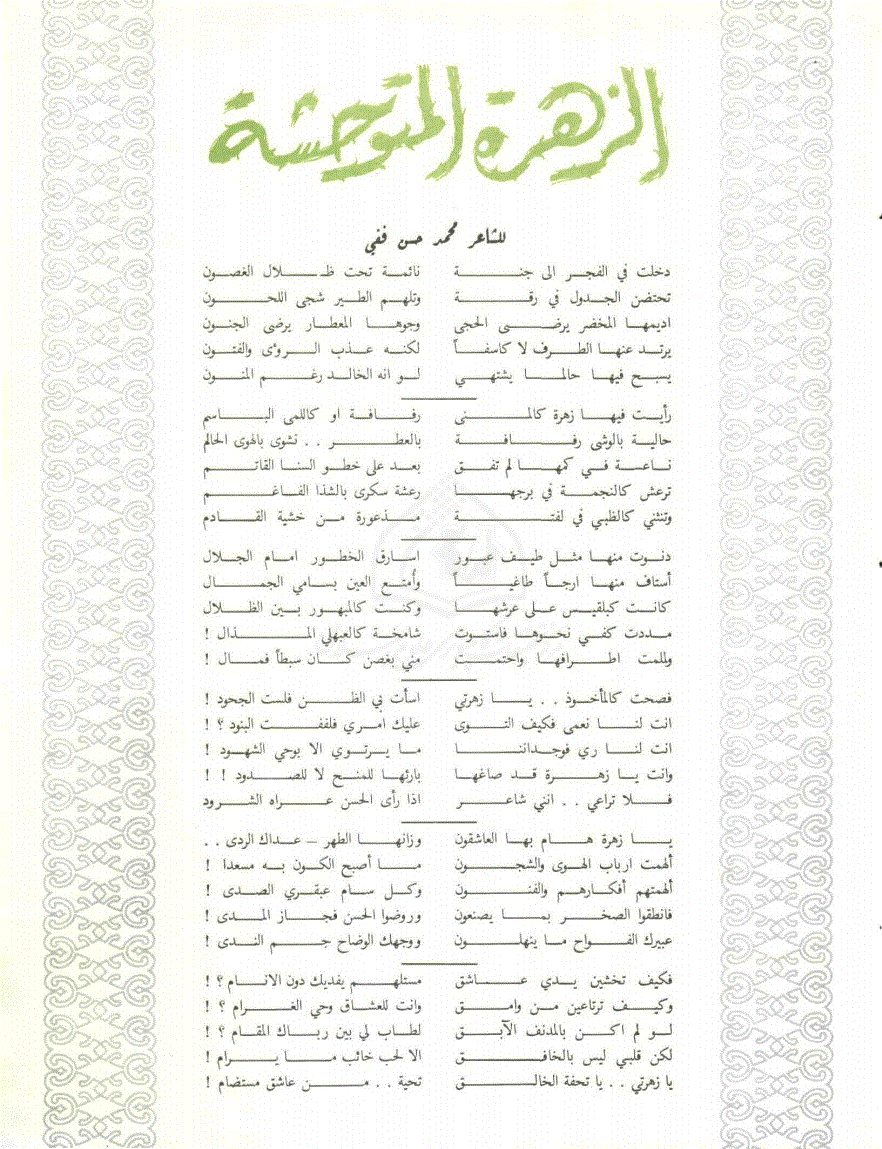 الزهرة المتوحشة
للشاعر محمد حسن فقي
دخلت في الفجر الى جنة نائمة تحت ظلال الغصون
تحتضن الجدول في رقة وتلهم الطير شجى اللحون
اديمها المخضر يرضى الحجى وجوها المعطار يرضى الجنون
يرتد عنها الطرف لا كاسفاً لكنه عذب الرؤى والفتون
يسبح فيها حالما يشتهي لو انه الخالد رغم المنون
رأيت فيها زهرة كالمنى رفافة او كاللمى الباسم
حالية بالوشى رفافة بالعطر . . نشوى بالهوى الحالم
ناعسة في كمها لم تفق بعد على خطو السنا القاتم
ترعش كالنجمة في برجها رعشة سكرى بالشذا الفاغم
وتنثني كالظبي في لفتة مذعورة من خشية القادم
دنوت منها مثل طيف عبور اسارق الخطور امام الجلال
أستاف منها ارجاً طاغياً وأمتع العين بسامي الجمال
كانت كبلقيس على عرشها وكنت كالمبهور بين الظلال
مددت كفي نحوها فاستوت شامخة كالعبهلي المذال !
ولملمت اطرافها واحتمت مني بغصن كان سبطاً فمال !
فصحت كالمأخوذ . . يا زهرتي اسأت بي الظن فلست الجحود !
انت لنا نعمى فكيف التوى عليك امري فلففت البنود ؟ !
انت لنا ري فوجداننا ما يرتوي الا بوحي الشهود !
وانت يا زهرة قد صاغها بارئها للمنح لا للصدود ! !
فلا تراعي . . انني شاعر اذا رأى الحسن عراه الشرود
يا زهرة هام بها العاشقون وزانها الطهر – عداك الردى . .
ألهمت ارباب الهوى والشجون ما أصبح الكون به مسعدا !
ألهمتهم أفكارهم والفنون وكل سام عبقري الصدى !
فانطقوا الصخر بما يصنعون وروضوا الحسن فجاز المدى !
عبيرك الفواح ما ينهلون ووجهك الوضاح جم الندى !
فكيف تخشين يدي عاشق مستلهم يفديك دون الانام ؟ !
وكيف ترتاعين من وامق وانت للعشاق وحي الغرام ؟ !
لو لم اكن بالمدنف الآبق لطاب لي بين رباك المقام ؟ !
لكن قلبي ليس بالخافق الا لحب خائب ما يرام !
يا زهرتي . . يا تحفة الخالق تحية . . من عاشق مستضام !